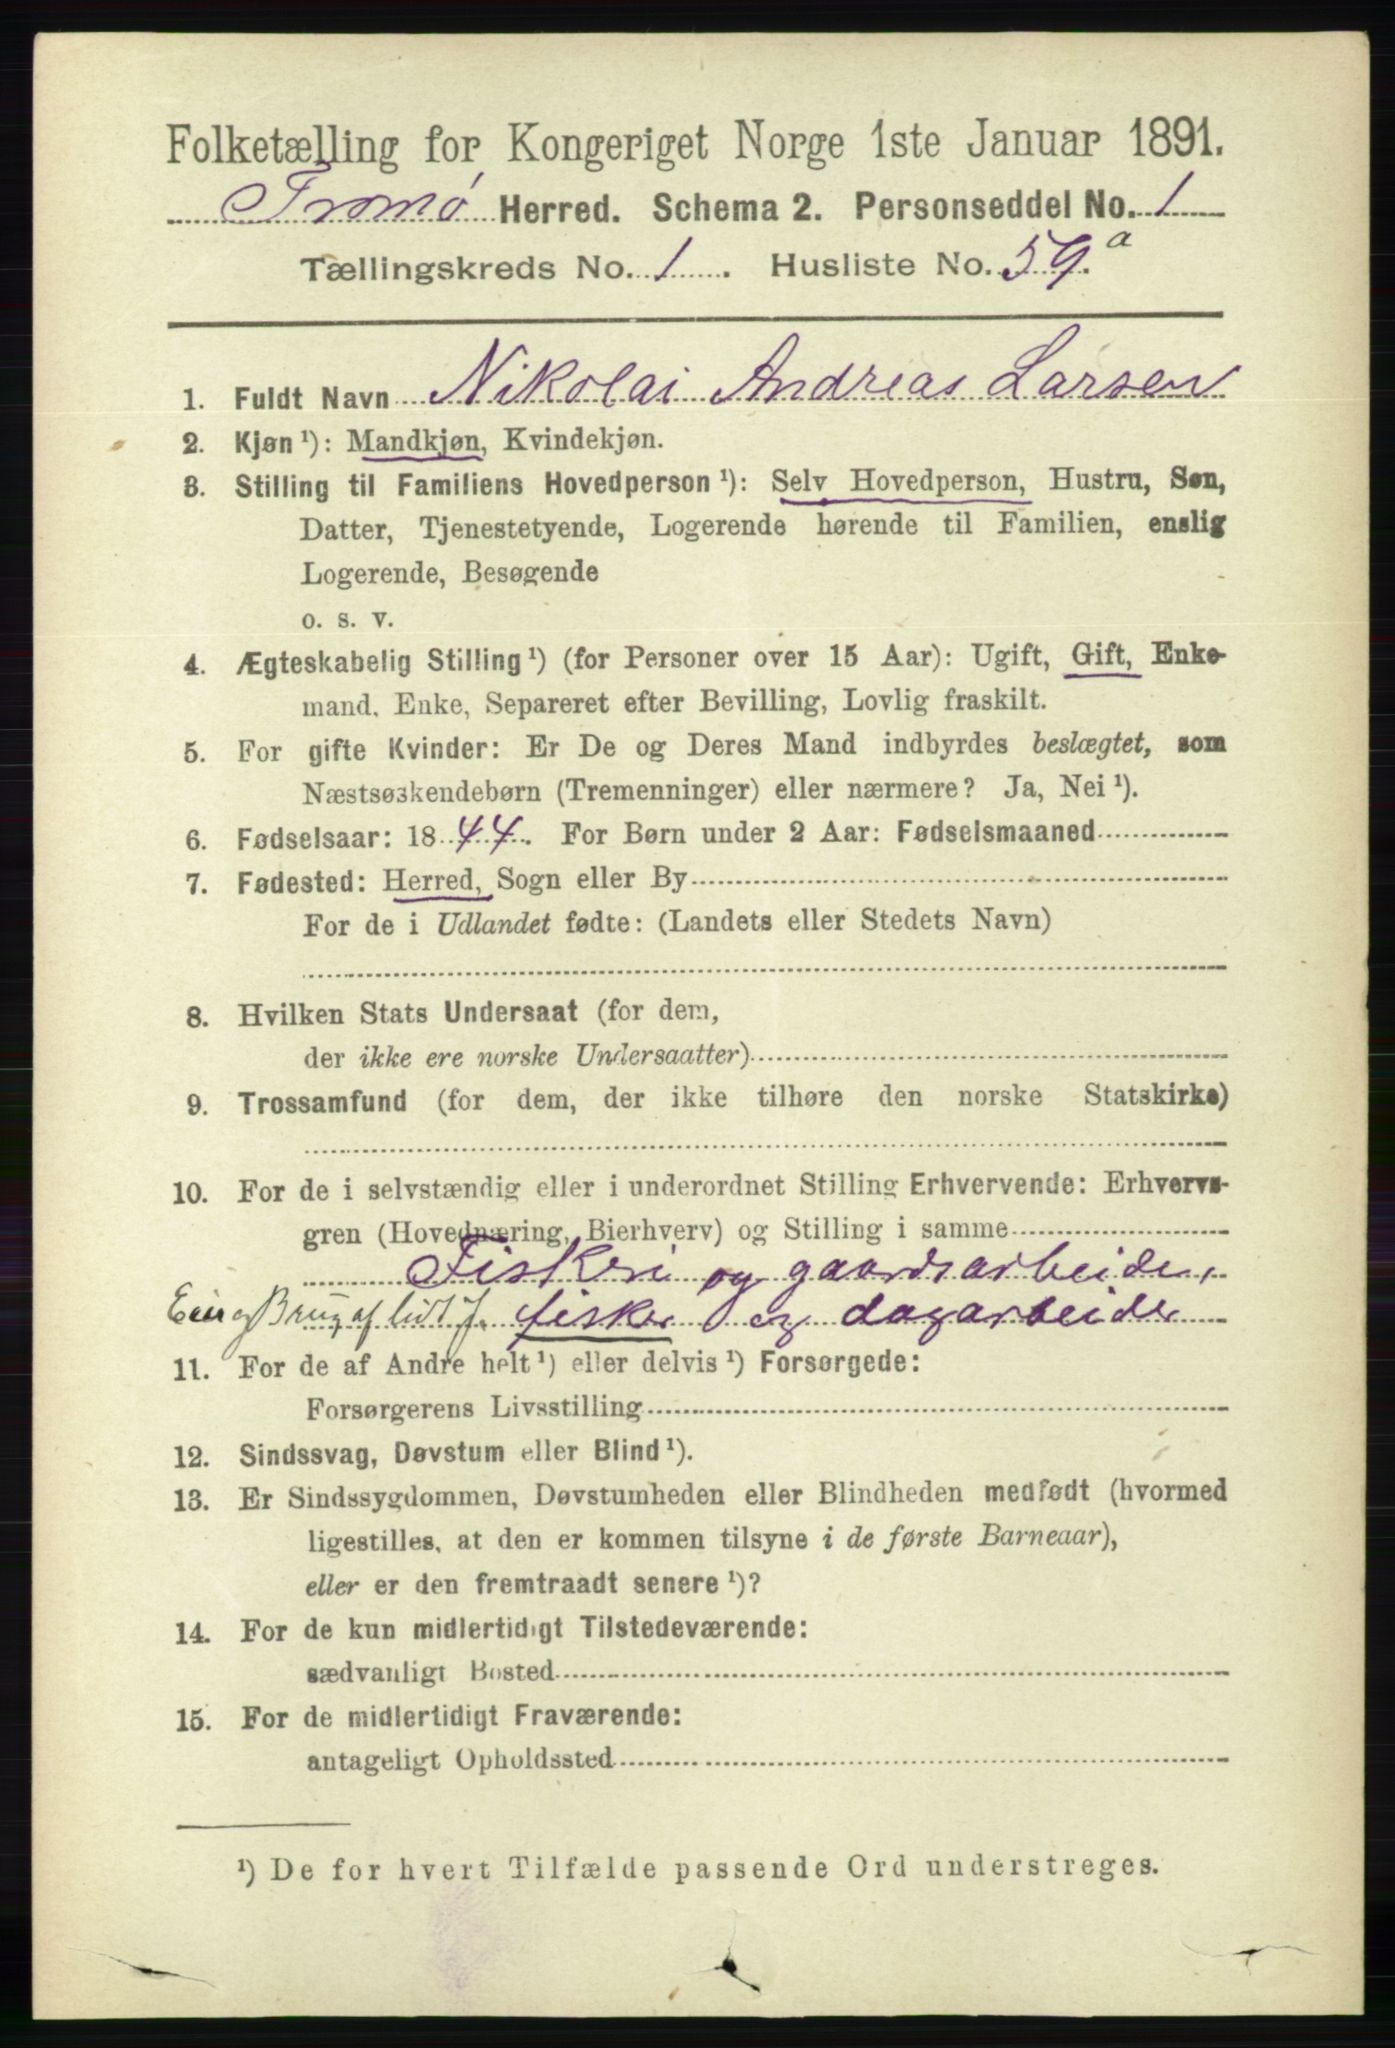 Folketælling for Kongeriget Norge 1ste Januar 1891.
Tromø Herred. Schema 2. Personseddel No. 1
Tællingskreds No. 1. Husliste No. 59.a
1. Fuldt Navn Nikolai Andreas Larsen
2. Kjøn¹): Mandkjøn, Kvindekjøn.
3. Stilling til Familiens Hovedperson¹): Selv Hovedperson, Hustru, Søn,
Datter, Tjenestetyende, Logerende hørende til Familien, enslig
Logerende, Besøgende
o. s. v.
4. Ægteskabelig Stilling¹) (for Personer over 15 Aar): Ugift, Gift, Enke-
mand, Enke, Separeret efter Bevilling, Lovlig fraskilt.
5. For gifte Kvinder: Er De og Deres Mand indbyrdes beslægtet, som
Næstsøskendebørn (Tremenninger) eller nærmere? Ja, Nei¹).
6. Fødselsaar: 1844. For Børn under 2 Aar: Fødselsmaaned
7. Fødested: Herred, Sogn eller By
For de i Udlandet fødte: (Landets eller Stedets Navn)
8. Hvilken Stats Undersaat (for dem,
der ikke ere norske Undersaatter)
9. Trossamfund (for dem, der ikke tilhøre den norske Statskirke)
10. For de i selvstændig eller i underordnet Stilling Erhvervende: Erhvervs-
gren (Hovednæring, Bierhverv) og Stilling i samme
Fiskeri og gaardsarbeide,
Eier og Brug af lidt J. fisker og dagarbeider
11. For de af Andre helt¹) eller delvis¹) Forsørgede:
Forsørgerens Livsstilling
12. Sindssvag, Døvstum eller Blind¹).
13. Er Sindssygdommen, Døvstumheden eller Blindheden medfødt (hvormed
ligestilles, at den er kommen tilsyne i de første Barneaar),
eller er den fremtraadt senere¹)?
14. For de kun midlertidigt Tilstedeværende:
sædvanligt Bosted
15. For de midlertidigt Fraværende:
antageligt Opholdssted
¹) De for hvert Tilfælde passende Ord understreges.